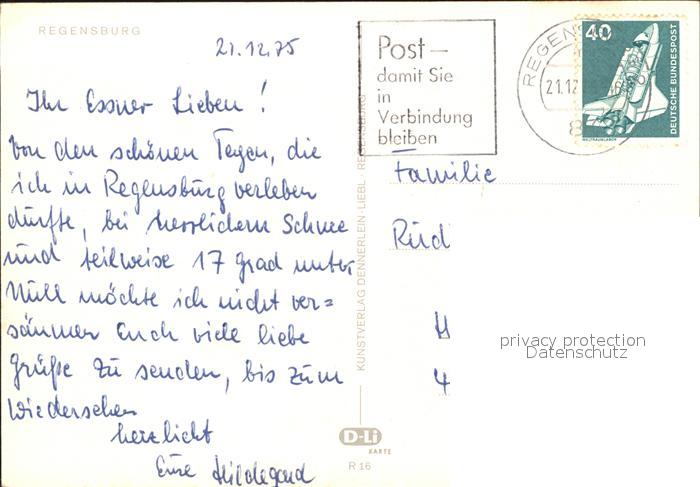 REGENSBURG
21.12.75
Ihr Essner Lieben!
Von den schönen Tagen, die
ich in Regensburg verleben
durfte, bei herrlichem Schnee
und teilweise 17 Grad unter
Null möchte ich nicht ver=
säumen Euch viele liebe
Grüße zu senden, bis zum
Wiedersehen
herzlichst
Eure Hildegard
KUNSTVERLAG DENNERLEIN-LIEBL · REGENSBURG
D-Li
KARTE
R 16
Post –
damit Sie
in
Verbindung
bleiben
REGENS
21.12
8
40
DEUTSCHE BUNDESPOST
WELTRAUMLABOR
Familie
Rüd
H
4
privacy protection
Datenschutz